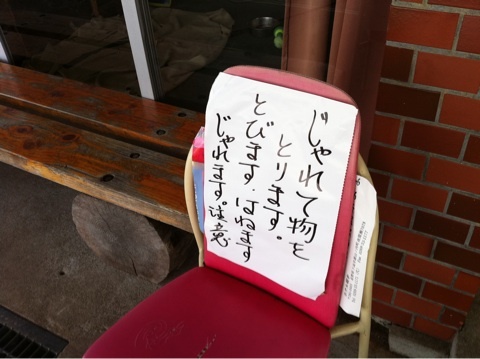 じゃれて物を
とります。
とびます.はねます
じゃれます。注意